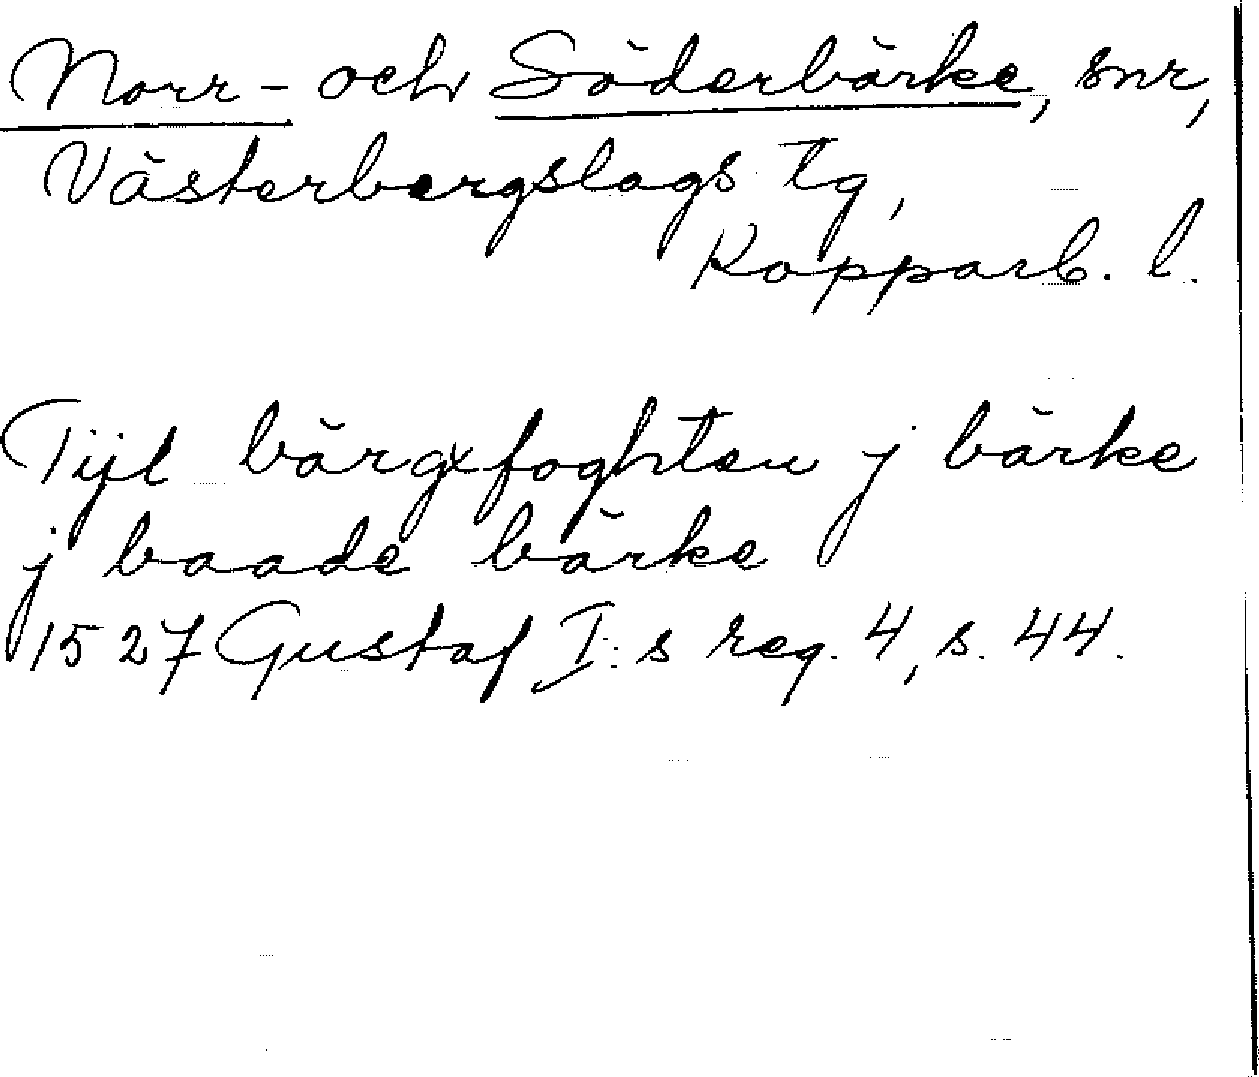 Norr- och Söderbärke, snr,
Västerbergslags tg,
Kopparb. l.
Tijl bärgxfoghten j bärke
j baade bärke
1527 Gustaf I:s reg. 4, s. 44.